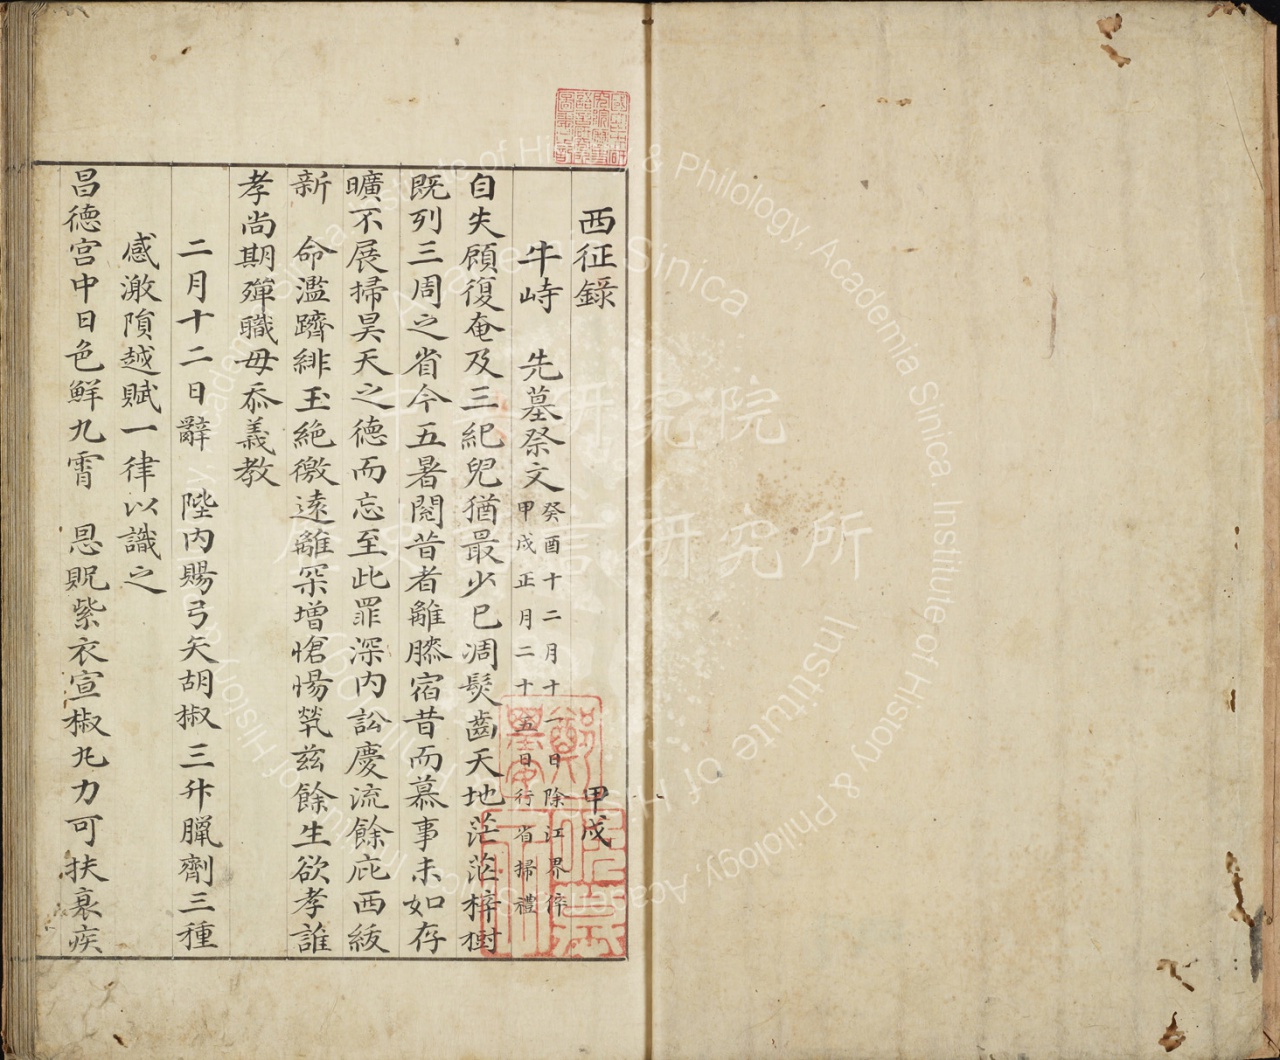 西征錄 甲戌
牛峙 先墓祭文
癸酉十二月十一日除江界倅
甲戌正月二十五日行省掃禮
自失顧復奄及三紀兒猶最少已凋髮齒天地茫茫梓樹
既列三周之省今五暑閱昔者離膝宿昔而慕事未如存
曠不展掃昊天之德而忘至此罪深內訟慶流餘庇西紱
新 命濫躋緋玉絶徼遠離采增愴惕煢兹餘生欲孝誰
孝尚期殫職毋忝義教
二月十二日辭 陛內賜弓矢胡椒三升臘劑三種
感激隕越賦一律以識之
昌德宮中日色鮮九霄 恩貺紫衣宣椒丸力可扶衰疾
中央研究院
歷史語言研究所
Institute of History & Philology, Academia Sinica